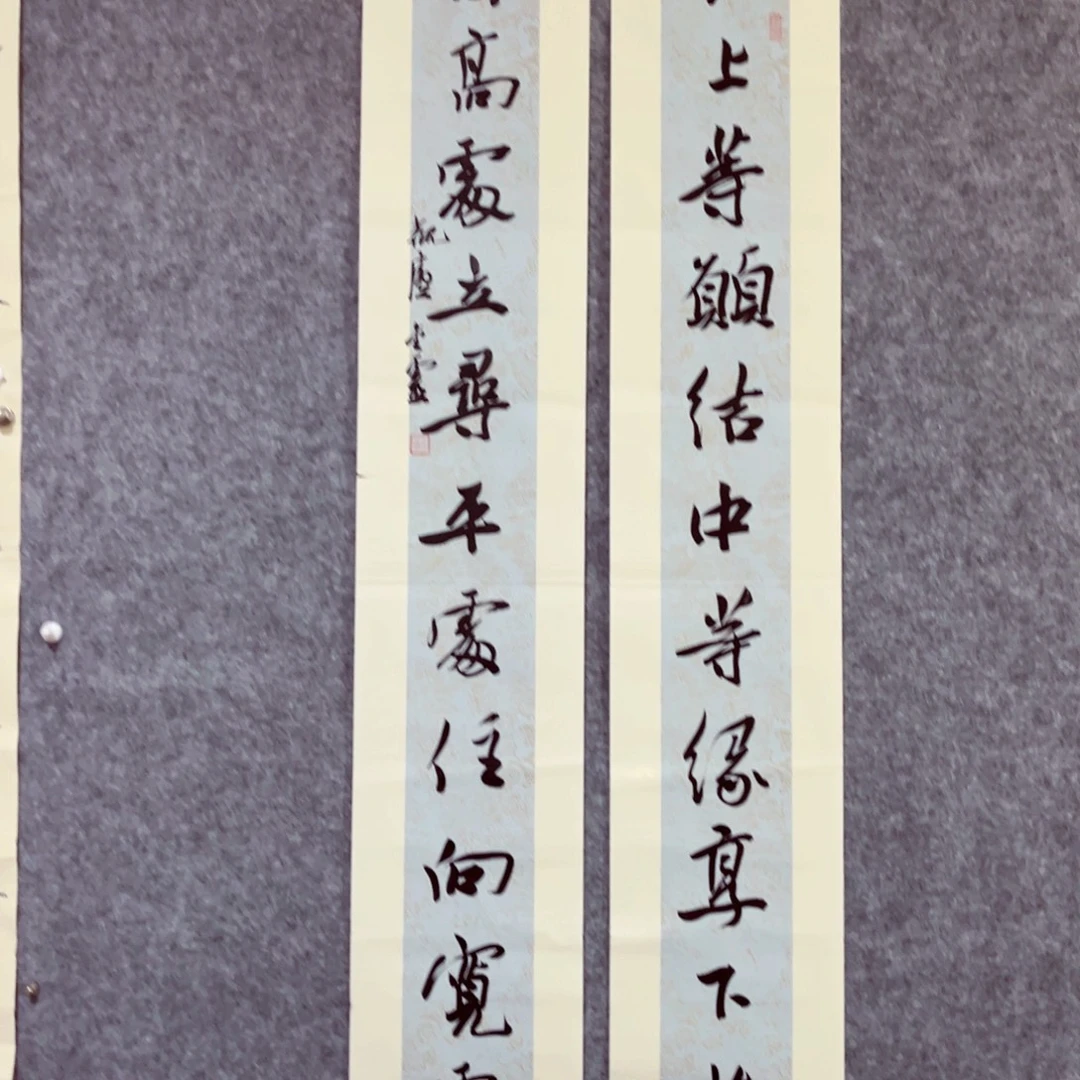 上等願結中等緣享下
高處立尋平處住向寬